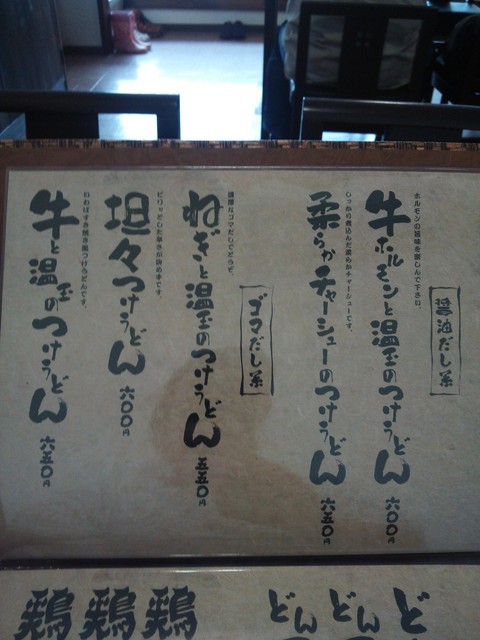 醤油だし系
ホルモンの旨味を楽しんで下さい。
牛ホルモンと温玉のつけうどん 六〇〇円
しっかり煮込んだ柔らかチャーシューです。
柔らかチャーシューのつけうどん 六五〇円
ゴマだし系
濃厚なゴマだしでどうぞ。
ねぎと温玉のつけうどん 五五〇円
ピリッとした辛さが決め手です。
坦々つけうどん 六〇〇円
いわばすき焼き風つけうどんです。
牛と温玉のつけうどん 六五〇円
ど
どん
どん
鶏
鶏
鶏